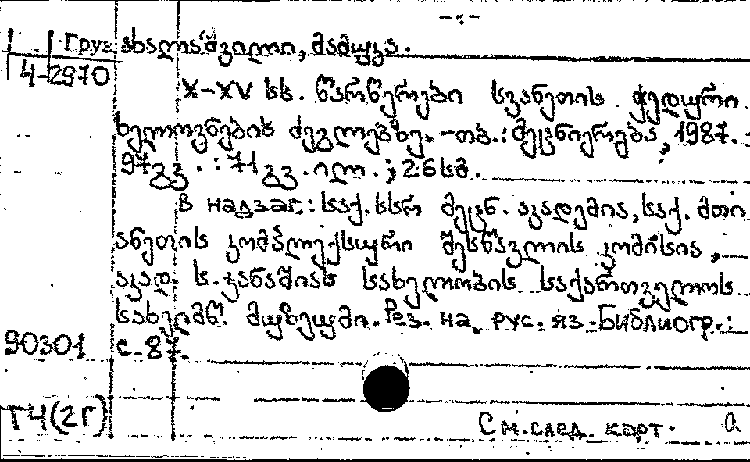 Груз ახალაშვილი, მამუკა.
4-2970
X-XV სს. წარწერები სვანეთის ჭედური
ხელოვნების ძეგლებზე. -თბ.: მეცნიერება, 1987. -
97გვ. : 71გვ. ილ. ; 26სმ.
В надзаг.: საქ. სსრ მეცნ. აკადემია, საქ. მთი
ანეთის კომპლექსური შესწავლის კომისია,
აკად. ს. ჯანაშიას სახელობის საქართველოს
სახელმწ. მუზეუმი. Рез. на рус. яз. Библиогр.:
90301 с. 87.
Г4(2Г)
См. след. карт. а